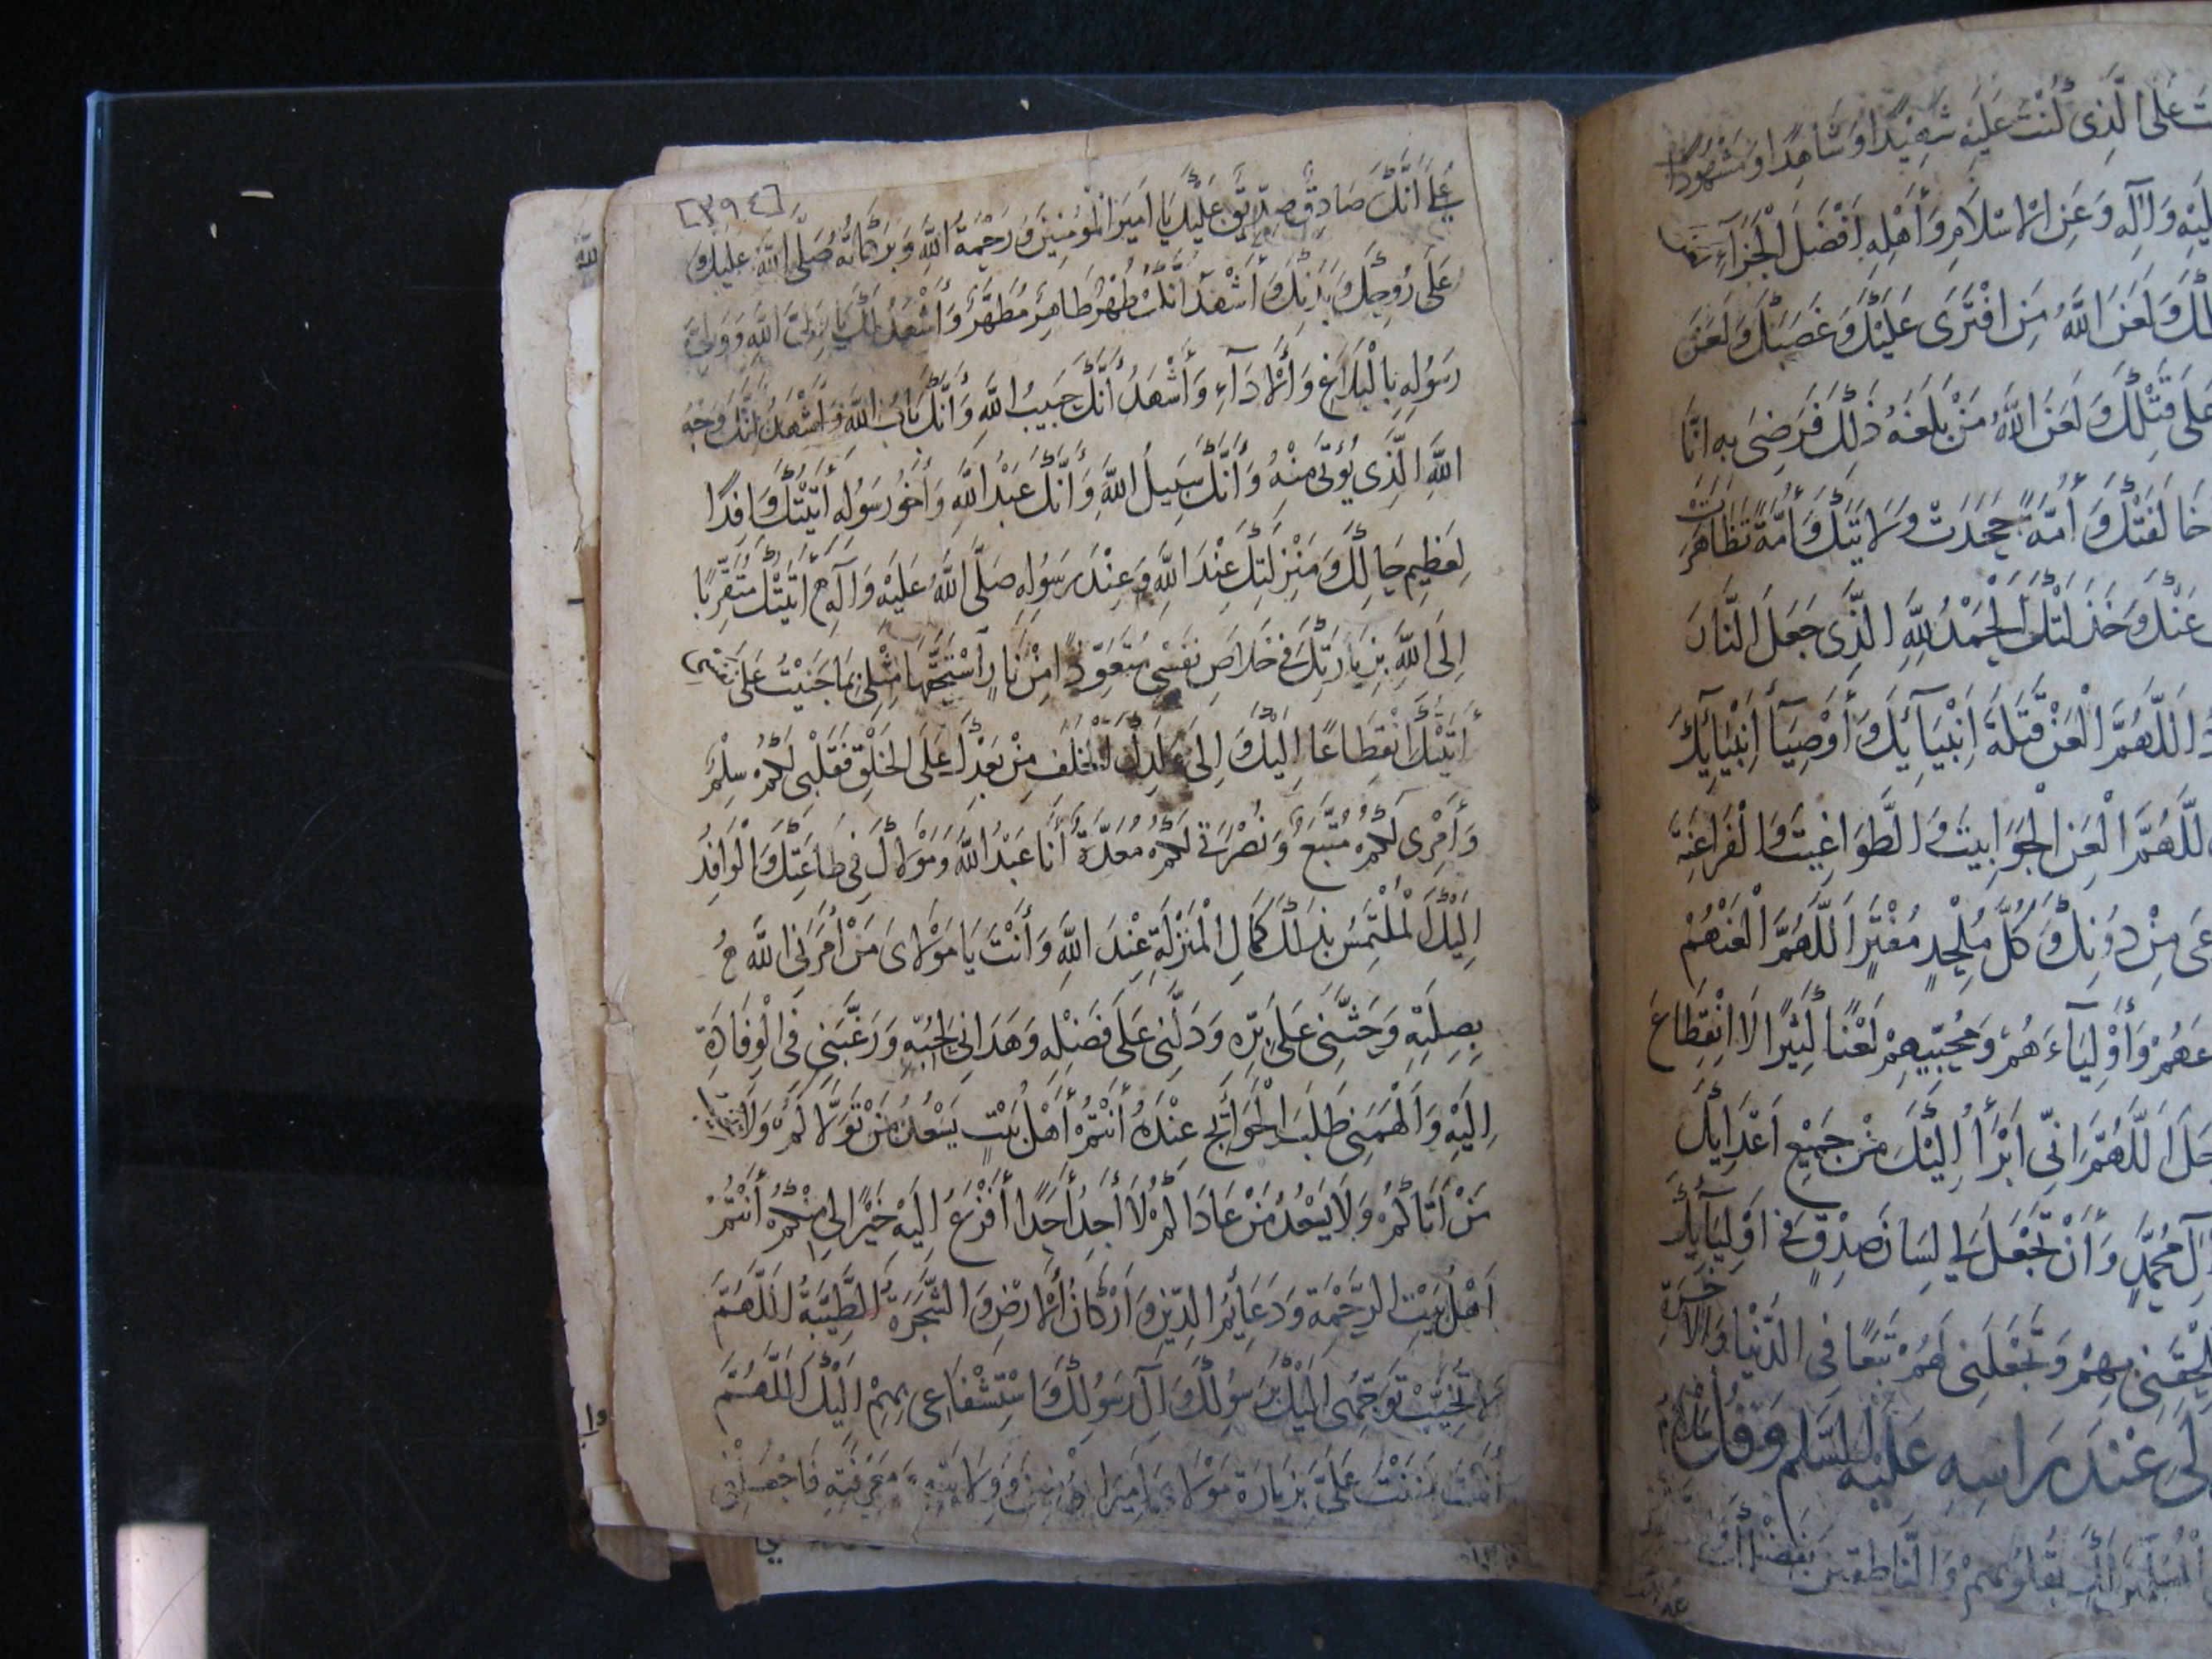 ت عَلَى الَّذِى كُنْتَ عَلَيْهِ شَهِيْدًا وَشَاهِدًا وَمَشْهُودًا
لَيْهِ وَآلِهِ وَعَنِ الْاِسْلَامِ وَأَهْلِهِ اَفْضَلَ الْجَزَآءِ
لَكَ وَلَعَنَ اللَّهُ مَنِ افْتَرَى عَلَيْكَ وَغَصَبَكَ وَلَعَنَ
عَلَى قَتْلِكَ وَلَعَنَ اللَّهُ مَنْ بَلَغَهُ ذٰلِكَ فَرَضِىَ بِهِ اِنَّا
خَالَفَتْكَ وَأُمَّةً جَحَدَتْ وَلَايَتَكَ وَأُمَّةً تَظَاهَرَتْ
عَنْكَ وَخَذَلَتْكَ الْحَمْدُ لِلَّهِ الَّذِى جَعَلَ النَّارَ
اَللَّهُمَّ الْعَنْ قَتَلَةَ اَنْبِيَآئِكَ وَأَوْصِيَآءِ اَنْبِيَآئِكَ
اَللَّهُمَّ الْعَنِ الْجَوَابِيتَ وَالطَّوَاغِيتَ وَالْفَرَاعِنَةَ
عَى مِنْ دُونِكَ وَكُلَّ مُلْحِدٍ مُفْتَرٍ اَللَّهُمَّ الْعَنْهُمْ
عَهُمْ وَأَوْلِيَآءَهُمْ وَمُحِبِّيهِمْ لَعْنًا كَثِيْرًا لَا انْقِطَاعَ
جَلَ اَللَّهُمَّ اِنِّى اَبْرَأُ اِلَيْكَ مِنْ جَمِيْعِ اَعْدَائِكَ
آلِ مُحَمَّدٍ وَأَنْ تَجْعَلَ لِى لِسَانَ صِدْقٍ فِى اَوْلِيَآئِكَ
لْحِقَنِى بِهِمْ وَتَجْعَلَنِى لَهُمْ تَبَعًا فِى الدُّنْيَا وَالْآخِرَةِ
لى عِنْدَ رَاسِهِ عَلَيْهِ السَّلَم وَقُلْ سَلَامُ
بِقُلُوبِهِمْ وَالنَّاطِقِينَ بِفَضْلِكَ
[٣٩٤]
عَلَى أَنَّكَ صَادِقٌ صِدِّيقٌ عَلَيْكَ يَا اَمِيرَ الْمُؤْمِنِينَ وَرَحْمَةُ اللَّهِ وَبَرَكَاتُهُ صَلَّى اللَّهُ عَلَيْكَ وَ
عَلَى رُوحِكَ وَبَدَنِكَ وَأَشْهَدُ أَنَّكَ طُهْرٌ طَاهِرٌ مُطَهَّرٌ وَأَشْهَدُ لَكَ يَا وَلِىَّ اللَّهِ وَوَلِىَّ
رَسُولِهِ بِالْبَلَاغِ وَالْأَدَآءِ وَأَشْهَدُ أَنَّكَ حَبِيبُ اللَّهِ وَأَنَّكَ بَابُ اللَّهِ وَأَشْهَدُ أَنَّكَ وَجْهُ
اللَّهِ الَّذِى يُؤْتَى مِنْهُ وَأَنَّكَ سَبِيلُ اللَّهِ وَأَنَّكَ عَبْدُ اللَّهِ وَأَخُو رَسُولِهِ أَتَيْتُكَ وَافِدًا
لِعَظِيمِ حَالِكَ وَمَنْزِلَتِكَ عِنْدَ اللَّهِ وَعِنْدَ رَسُولِهِ صَلَّى اللَّهُ عَلَيْهِ وَآلِهِ أَتَيْتُكَ مُتَقَرِّبًا
اِلَى اللَّهِ بِزِيَارَتِكَ فِى خَلَاصِ نَفْسِى مُتَعَوِّذًا مِنْ نَارٍ اسْتَحَقَّهَا مِثْلِى بِمَا جَنَيْتُ عَلَى نَفْسِى
أَتَيْتُكَ انْقِطَاعًا اِلَيْكَ وَاِلَى وَلَدِكَ الْخَلَفِ مِنْ بَعْدِكَ عَلَى الْخَلْقِ فَقَلْبِى لَكُمْ سِلْمٌ
وَأَمْرِى لَكُمْ مُتَّبِعٌ وَنُصْرَتِى لَكُمْ مُعَدَّةٌ أَنَا عَبْدُ اللَّهِ وَمَوْلَاكَ فِى طَاعَتِكَ وَالْوَافِدُ
اِلَيْكَ الْمُلْتَمِسُ بِذٰلِكَ كَمَالَ الْمَنْزِلَةِ عِنْدَ اللَّهِ وَأَنْتَ يَا مَوْلَاىَ مَنْ أَمَرَنِى اللَّهُ
بِصِلَتِهِ وَحَثَّنِى عَلَى بِرِّهِ وَدَلَّنِى عَلَى فَضْلِهِ وَهَدَانِى لِحُبِّهِ وَرَغَّبَنِى فِى الْوِفَادَةِ
اِلَيْهِ وَأَلْهَمَنِى طَلَبَ الْحَوَائِجِ عِنْدَهُ أَنْتُمْ أَهْلُ بَيْتٍ يَسْعُدُ مَنْ تَوَلَّاكُمْ وَلَا
مَنْ أَتَاكُمْ وَلَا يَسْعُدُ مَنْ عَادَاكُمْ لَا أَجِدُ أَحَدًا أَفْزَعُ اِلَيْهِ خَيْرًا لِى مِنْكُمْ أَنْتُمْ
اَهْلُ بَيْتِ الرَّحْمَةِ وَدَعَايِمُ الدِّينِ وَاَرْكَانُ الْأَرْضِ وَالشَّجَرَةُ الطَّيِّبَةُ اَللَّهُمَّ
لَا تُخَيِّبْ تَوَجُّهِى اِلَيْكَ بِرَسُولِكَ وَآلِ رَسُولِكَ وَاسْتِشْفَاعِى بِهِمْ اِلَيْكَ اَللَّهُمَّ
أَنْتَ مَنَنْتَ عَلَىَّ بِزِيَارَةِ مَوْلَاىَ اَمِيرِ الْمُؤْمِنِينَ وَوِلَايَتِهِ وَمَعْرِفَتِهِ فَاجْعَلْنِى